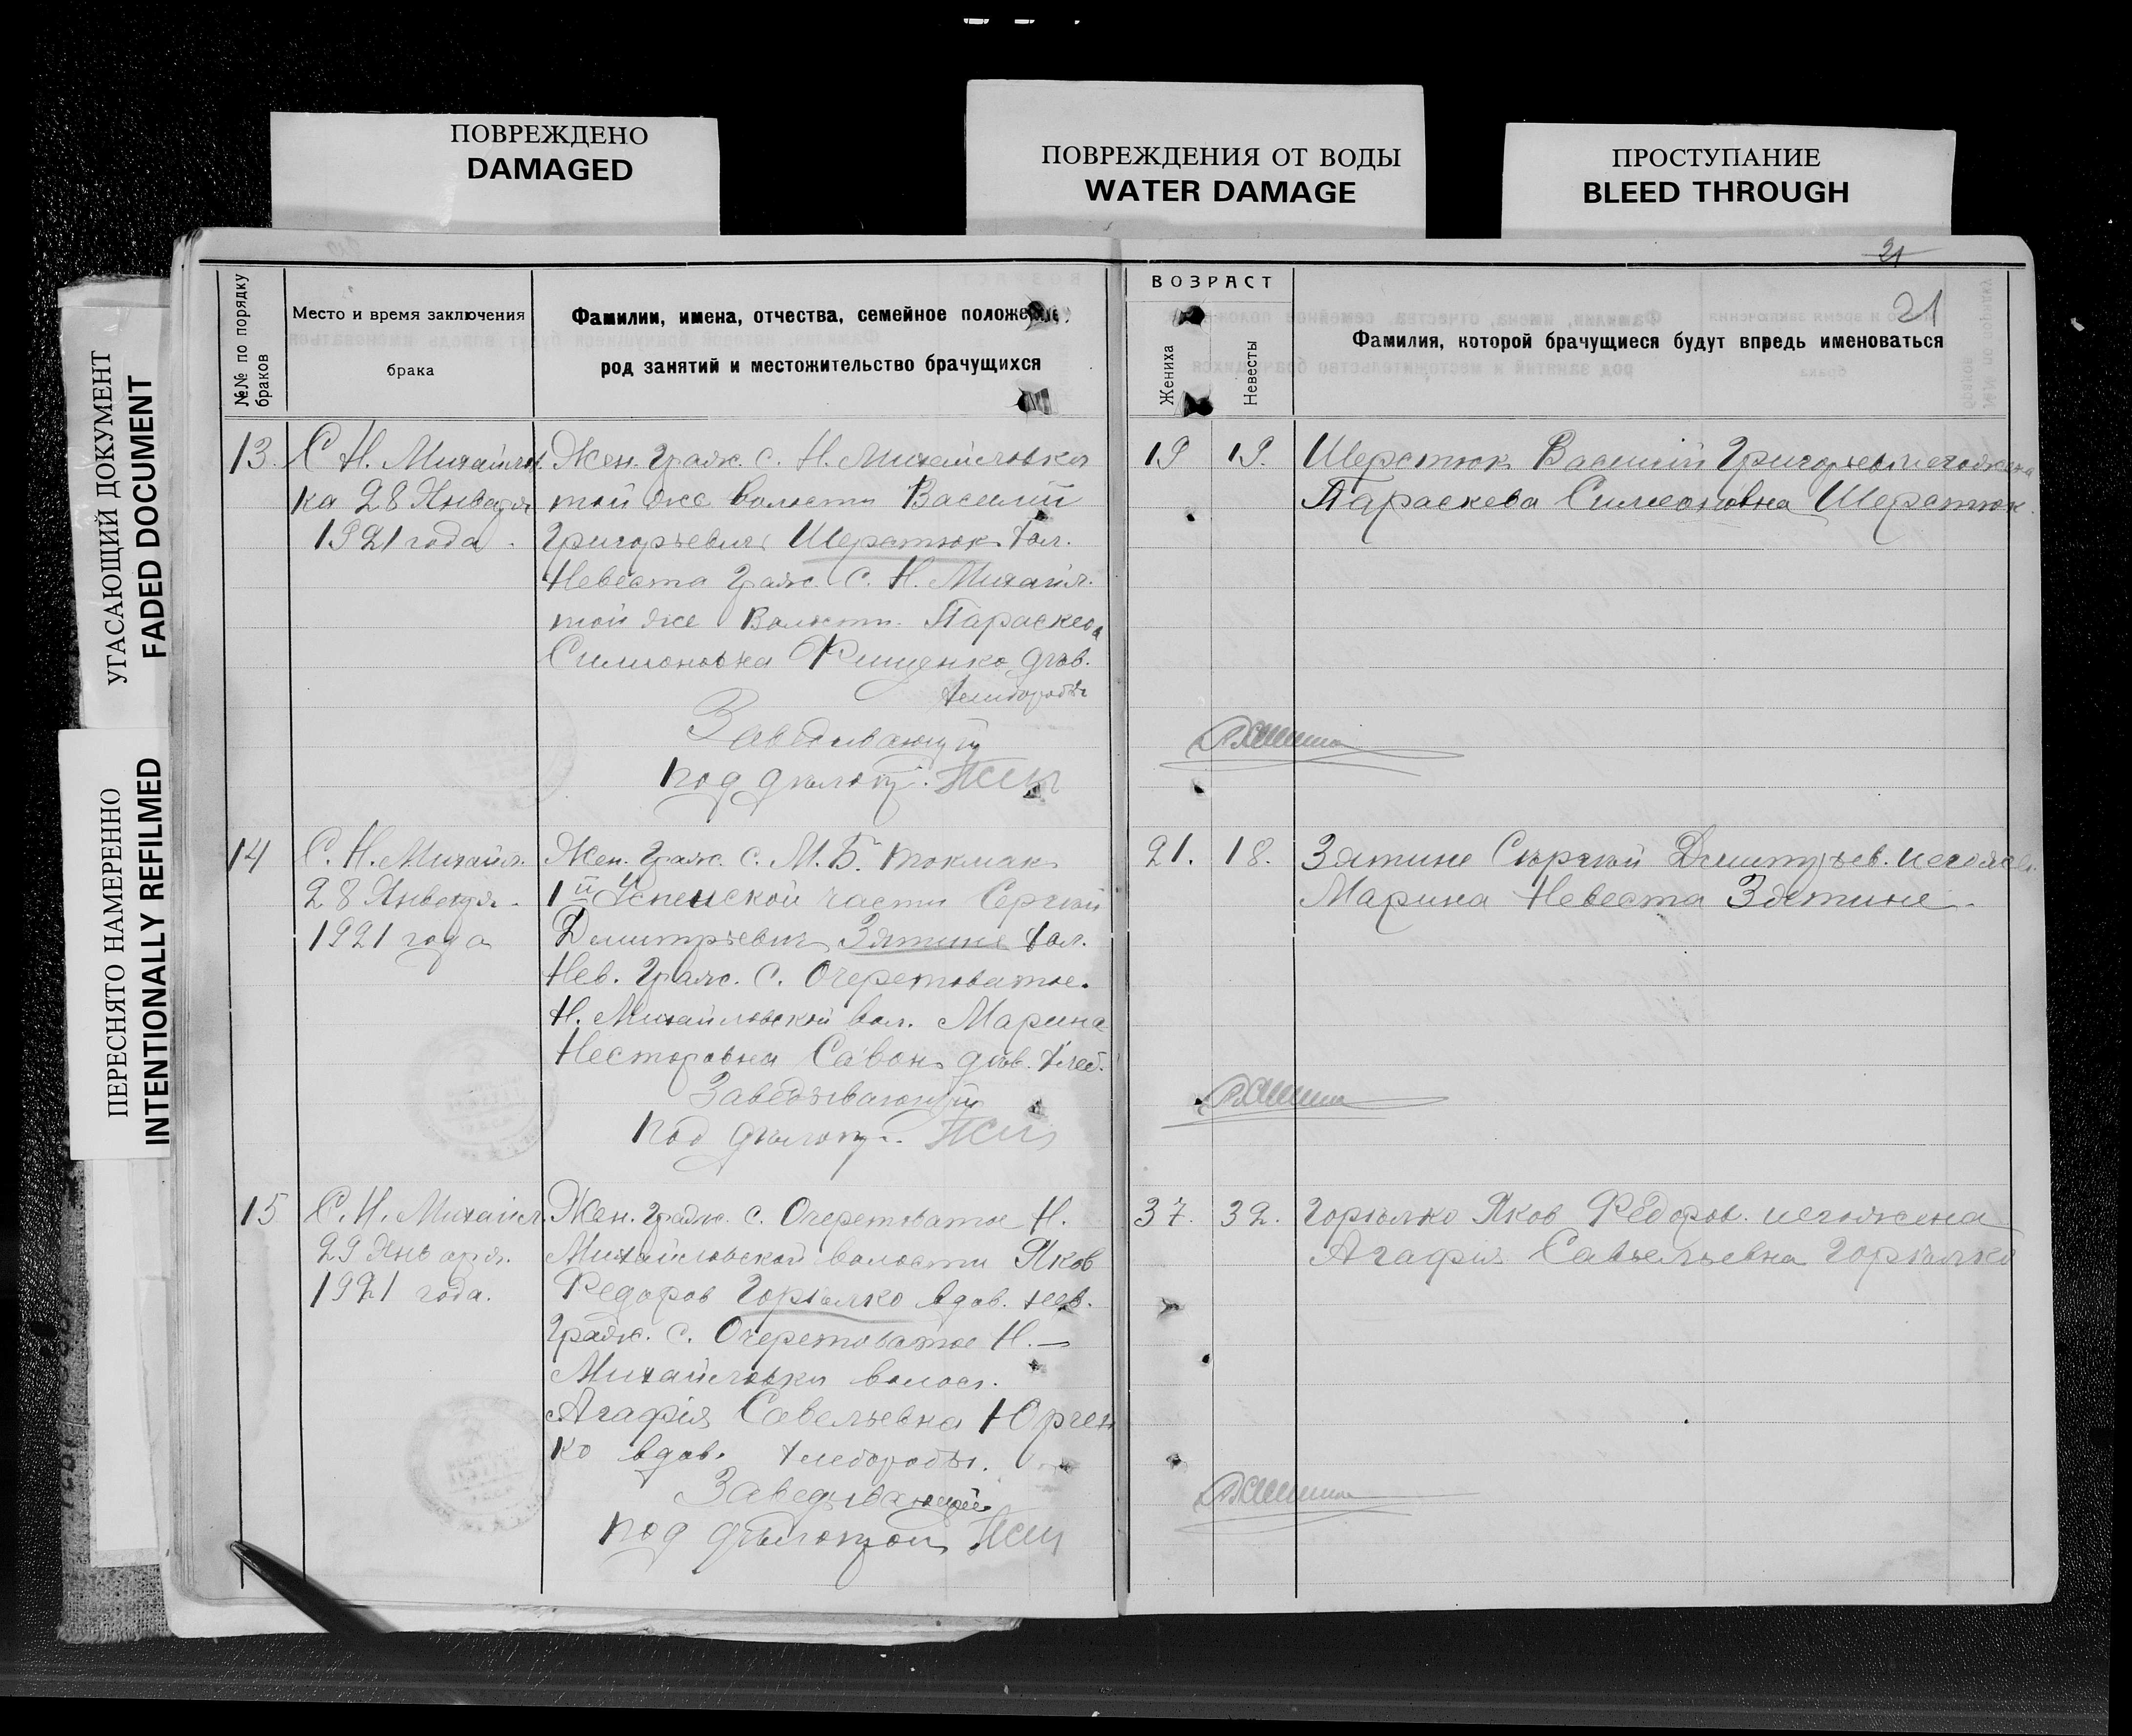 ПОВРЕЖДЕНО
DAMAGED
ПОВРЕЖДЕНИЯ ОТ ВОДЫ
WATER DAMAGE
ПРОСТУПАНИЕ
BLEED THROUGH
УГАСАЮЩИЙ ДОКУМЕНТ
FADED DOCUMENT
ПЕРЕСНЯТО НАМЕРЕННО
INTENTIONALLY REFILMED
21
21
№№ по порядку
браков
Место и время заключения
брака
Фамилии, имена, отчества, семейное положение,
род занятий и местожительство брачущихся
ВОЗРАСТ
Жениха
Невесты
Фамилия, которой брачущиеся будут впредь именоваться
13.
С Н. Михайлов
ка 28 Января
1921 года.
Жен. Граж. с. Н. Михайловка
той же волости Василий
Григорьевич Шерстюк хол.
Невеста Граж. С. Н. Михайл.
той же Волости. Параскева
Симионовна Фищенко дѣв.
хлебороды
Заведывающий
под
19 19.
Шерстюк Василий Григорьев. его жена
Параскева Симеоновна Шерстюк.
14
С. Н. Михайл.
28 Января.
1921 года
Жен. Граж. с. М. Б. Токмак
1й Успенской части Сергей
Дмитрьевич Зятине хол.
Нев. Граж. с. Очеретоватое.
Н. Михайловской вол. Марина
Несторовна Савон дѣв. хлеб.
Заведывающий
под
21. 18.
Зятине Сергей Дмитрьев. его жен.
Марина Невеста Зятине.
15
С. Н. Михайл.
29 Января.
1921 года.
Жен. Граж. с. Очеретоватое Н.
Михайловской волости Яков
Федоров Горѣлко вдов. нев.
Граж. с. Очеретоватое Н. —
Михайловки волос.
Агафія Савельевна Юрчен
ко вдов. хлебороды.
Заведывающий
под
37. 32.
Горѣлко Яков Федоров. его жена
Агафия Савельевна Горѣлко